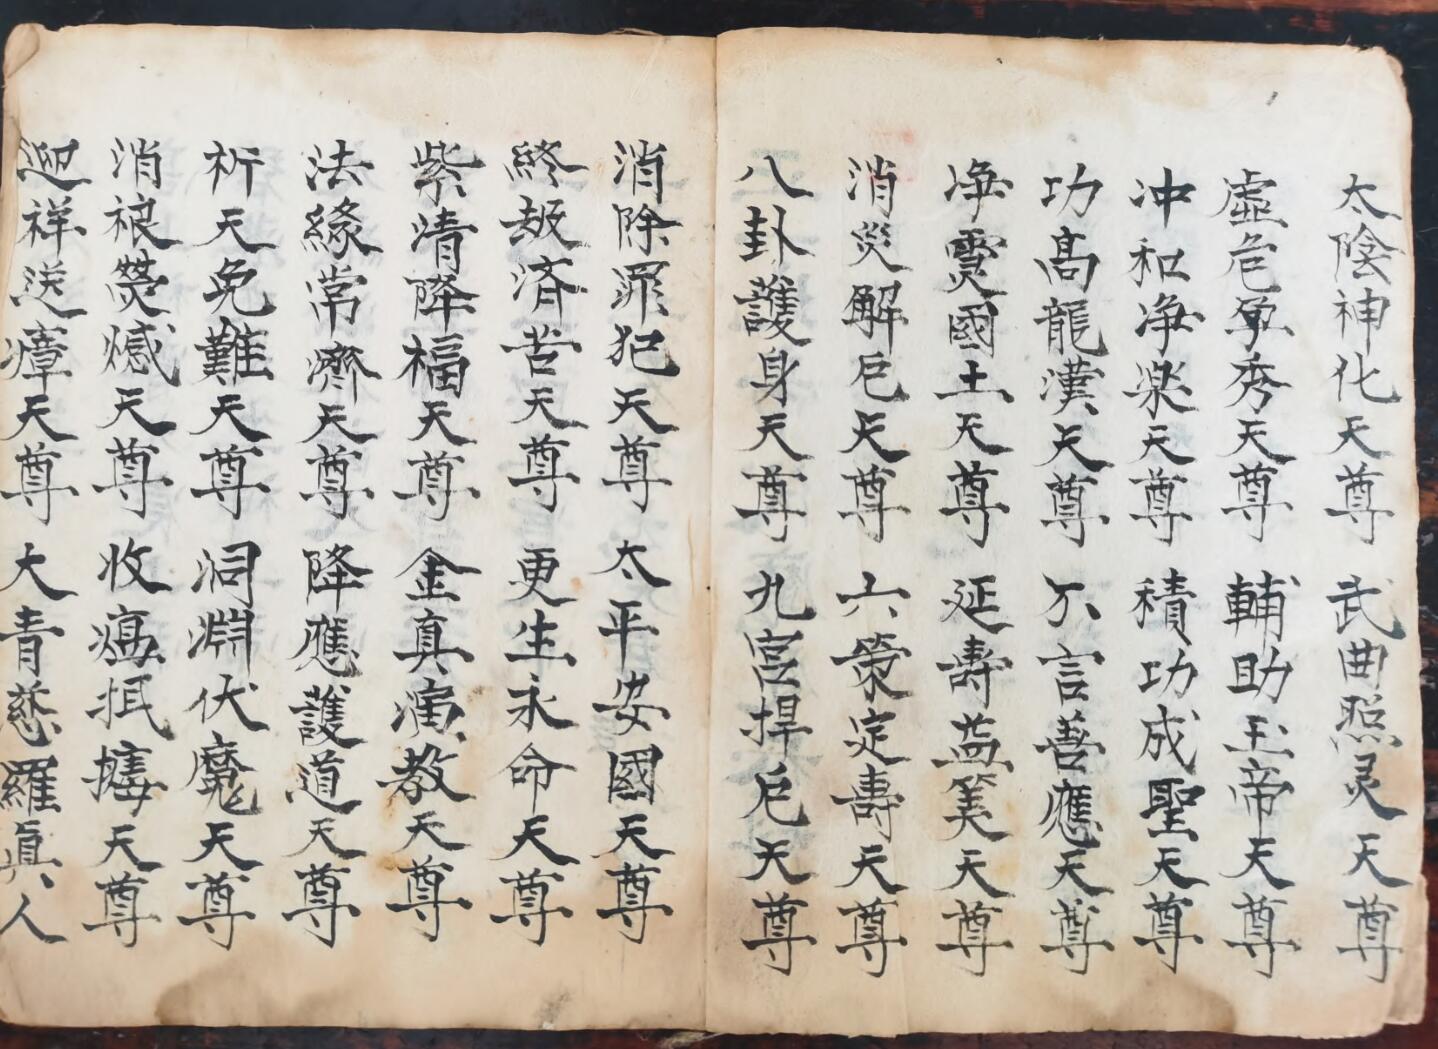 太陰神化天尊 武曲照灵天尊
虛危孕秀天尊 輔助玉帝天尊
冲和净楽天尊 積功成聖天尊
功高龍漢天尊 不言善應天尊
净 國土天尊 延壽益筭天尊
消災解厄天尊 六策定壽天尊
八卦護身天尊 九宫捍厄天尊
消除罪犯天尊 太平安國天尊
終劫済苦天尊 更生永命天尊
紫清降福天尊 金真演教天尊
法緣常濟天尊 降應護道天尊
祈天免難天尊 洞淵伏魔天尊
消 天尊 收瘟 天尊
迎祥送瘴天尊 大青慈羅真人